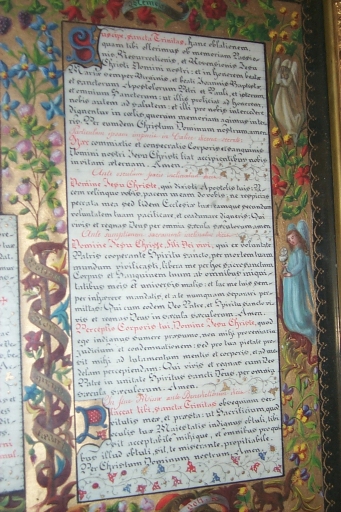 Suscipe, sancta Trinitas, hanc oblationem,
quam tibi offerimus ob memoriam Passio-
nis, Resurrectionis, et Ascensionis Jesu
Christi Domini nostri: et in honorem beatæ
Mariæ semper Virginis, et beati Joannis Baptistæ,
et sanctorum Apostolorum Petri et Pauli, et istorum,
et omnium Sanctorum: ut illis proficiat ad honorem,
nobis autem ad salutem: et illi pro nobis intercedere
dignentur in cœlis, quorum memoriam agimus in ter-
ris. Per eumdem Christum Dominum nostrum. amen.
Hæc commixtio et consecratio Corporis et Sanguinis
Domini nostri Jesu Christi fiat accipientibus nobis
in vitam æternam. Amen.
Domine Jesu Christe, qui dixisti Apostolis tuis: Pa-
cem relinquo vobis, pacem meam do vobis, ne respicias
peccata mea sed fidem Ecclesiæ tuæ, eamque secundum
voluntatem tuam pacificare, et coadunare digneris: Qui
vivis et regnas Deus per omnia sæcula sæculorum. amen.
Domine Jesu Christe, Fili Dei vivi, qui ex voluntate
Patris cooperante Spiritu Sancto, per mortem tuam
mundum vivificasti, libera me per hoc sacrosanctum
Corpus et Sanguinem tuum ab omnibus iniqui-
tatibus meis et universis malis: et fac me tuis sem-
per inhærere mandatis, et a te nunquam separari per-
mittas: Qui cum eodem Deo Patre, et Spiritu Sancto vi-
vis et regnas Deus in sæcula sæculorum. Amen.
Perceptio Corporis tui, Domine Jesu Christe, quod
ego indignus sumere præsumo, non mihi proveniat in
judicium et condemnationem: sed pro tua pietate pro-
sit mihi ad tutamentum mentis et corporis, et ad me-
delam percipiendam: Qui vivis et regnas cum Deo
Patre in unitate Spiritus Sancti Deus, per omnia
sæcula sæculorum. Amen.
Placeat tibi, sancta Trinitas obsequium ser-
vitutis meæ, et præsta: ut Sacrificium, quod
oculis tuæ Majestatis indignus obtuli, tibi
sit acceptabile mihique, et omnibus pro qui-
bus illud obtuli, sit, te miserante, propitiabile.
Per Christum Dominum nostrum. Amen.